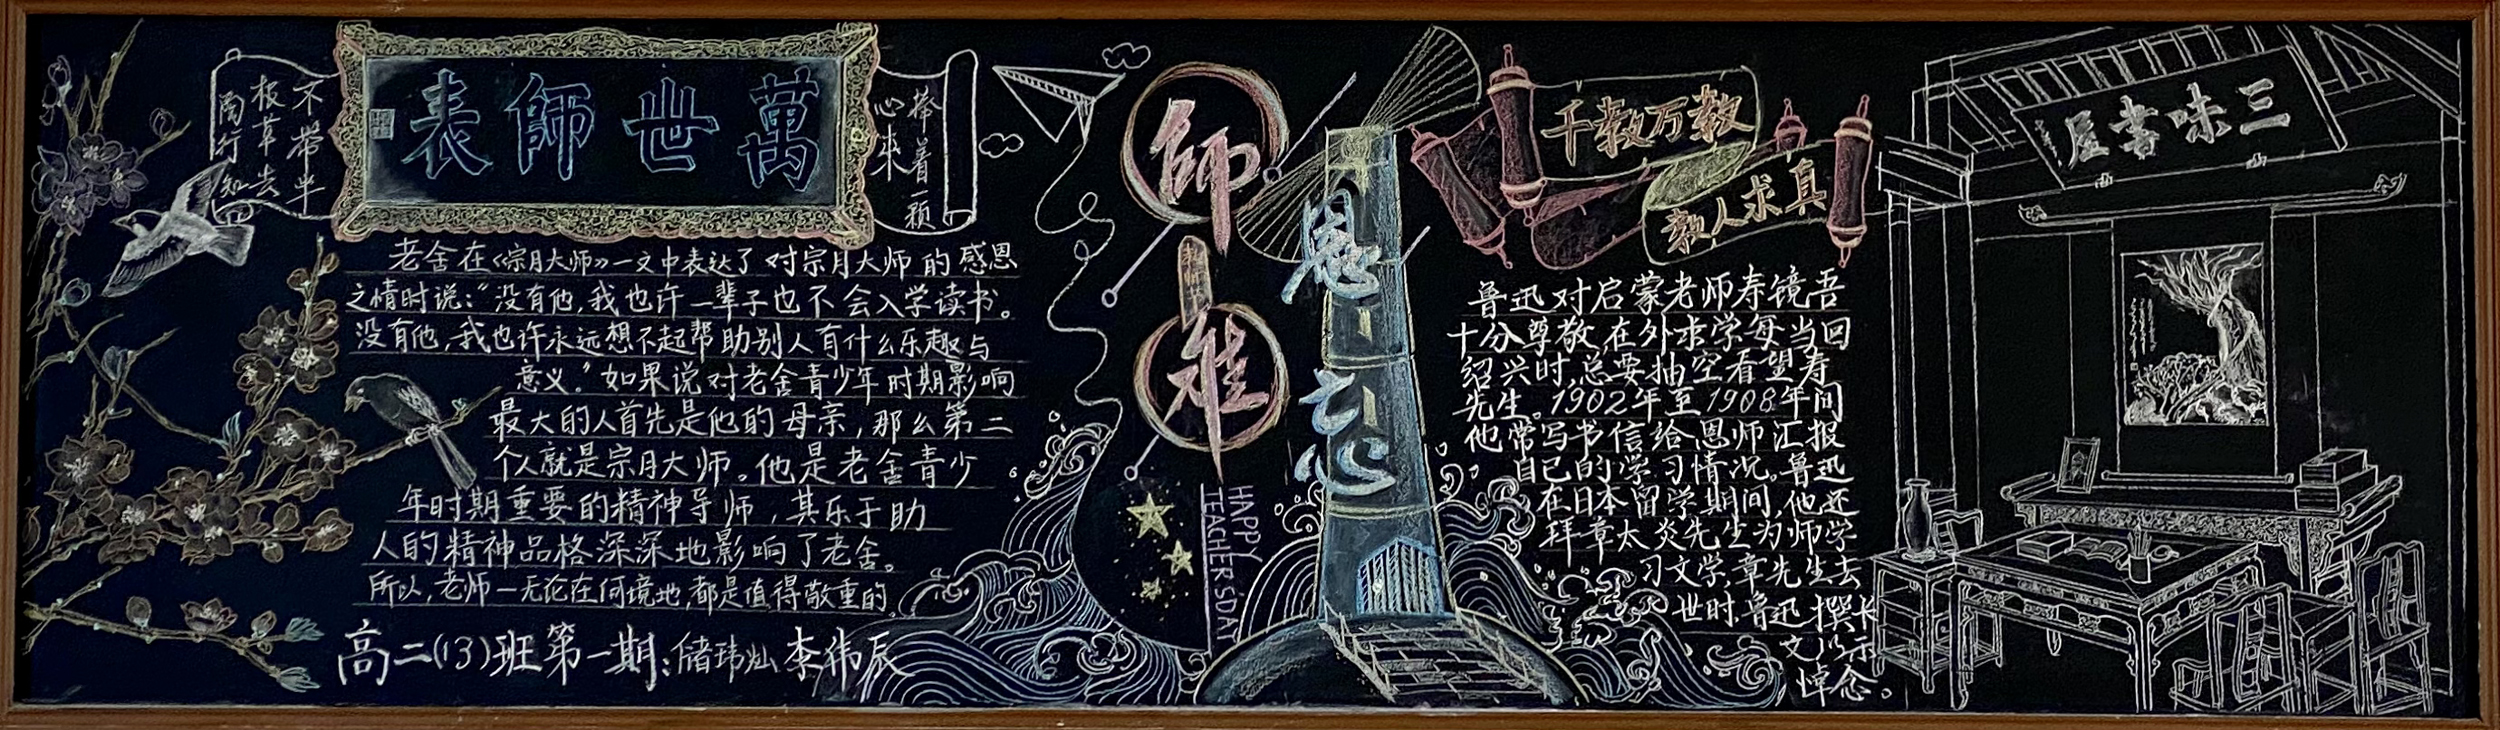 萬世師表
捧着一颗
心来
不带半
根草去
陶行知
老舍在《宗月大师》一文中表达了对宗月大师的感恩
之情时说:“没有他,我也许一辈子也不会入学读书。
没有他,我也许永远想不起帮助别人有什么乐趣与
意义。”如果说对老舍青少年时期影响
最大的人首先是他的母亲,那么第二
个人就是宗月大师。他是老舍青少
年时期重要的精神导师,其乐于助
人的精神品格深深地影响了老舍。
所以,老师一无论在何境地,都是值得敬重的。
高二(13)班第一期:储玮灿 李伟辰
师恩
难忘
HAPPY
TEACHER'S DAY
千教万教
教人求真
鲁迅对启蒙老师寿镜吾
十分尊敬,在外求学每当回
绍兴时,总要抽空看望寿
先生。1902年至1908年间
他常写书信给恩师汇报
自己的学习情况。鲁迅
在日本留学期间,他还
拜章太炎先生为师学
习文学,章先生去
世时,鲁迅撰长
文以示
悼念。
三味書屋